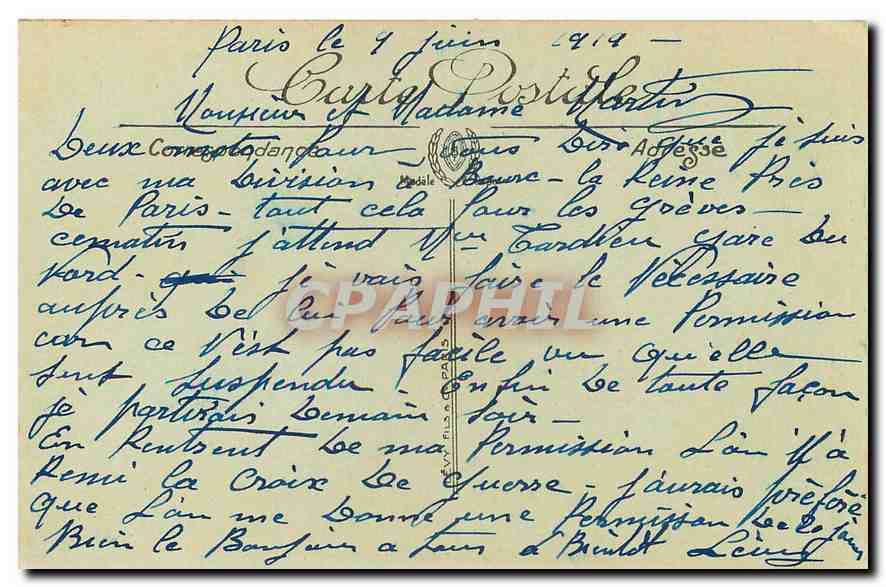 Paris le 9 juin 1919 -
Carte Postale
Monsieur et Madame Martin
Correspondance Adresse
Deux mots pour vous Dire que je suis
avec ma Division à Bourg - la Reine Près
Modèle
De Paris - tout cela pour les grèves -
cematin j'attend Mme Tardieu gare Du
Nord - je vais faire le Nécessaire
auprès De lui pour avoir une Permission
CARTAPHIL
car ce N'est pas facile vu qu'elle
sont suspendu Enfin De toute façon
je partirais Demain soir -
En Rentrent De ma Permission L'on M'a
Remi la Croix De Guerre - j'aurais préféré
que L'on me Donne une Permission De 20 jours
Bien le Bonjour a tous a Bientôt
LÉVY FILS & Cie PARIS